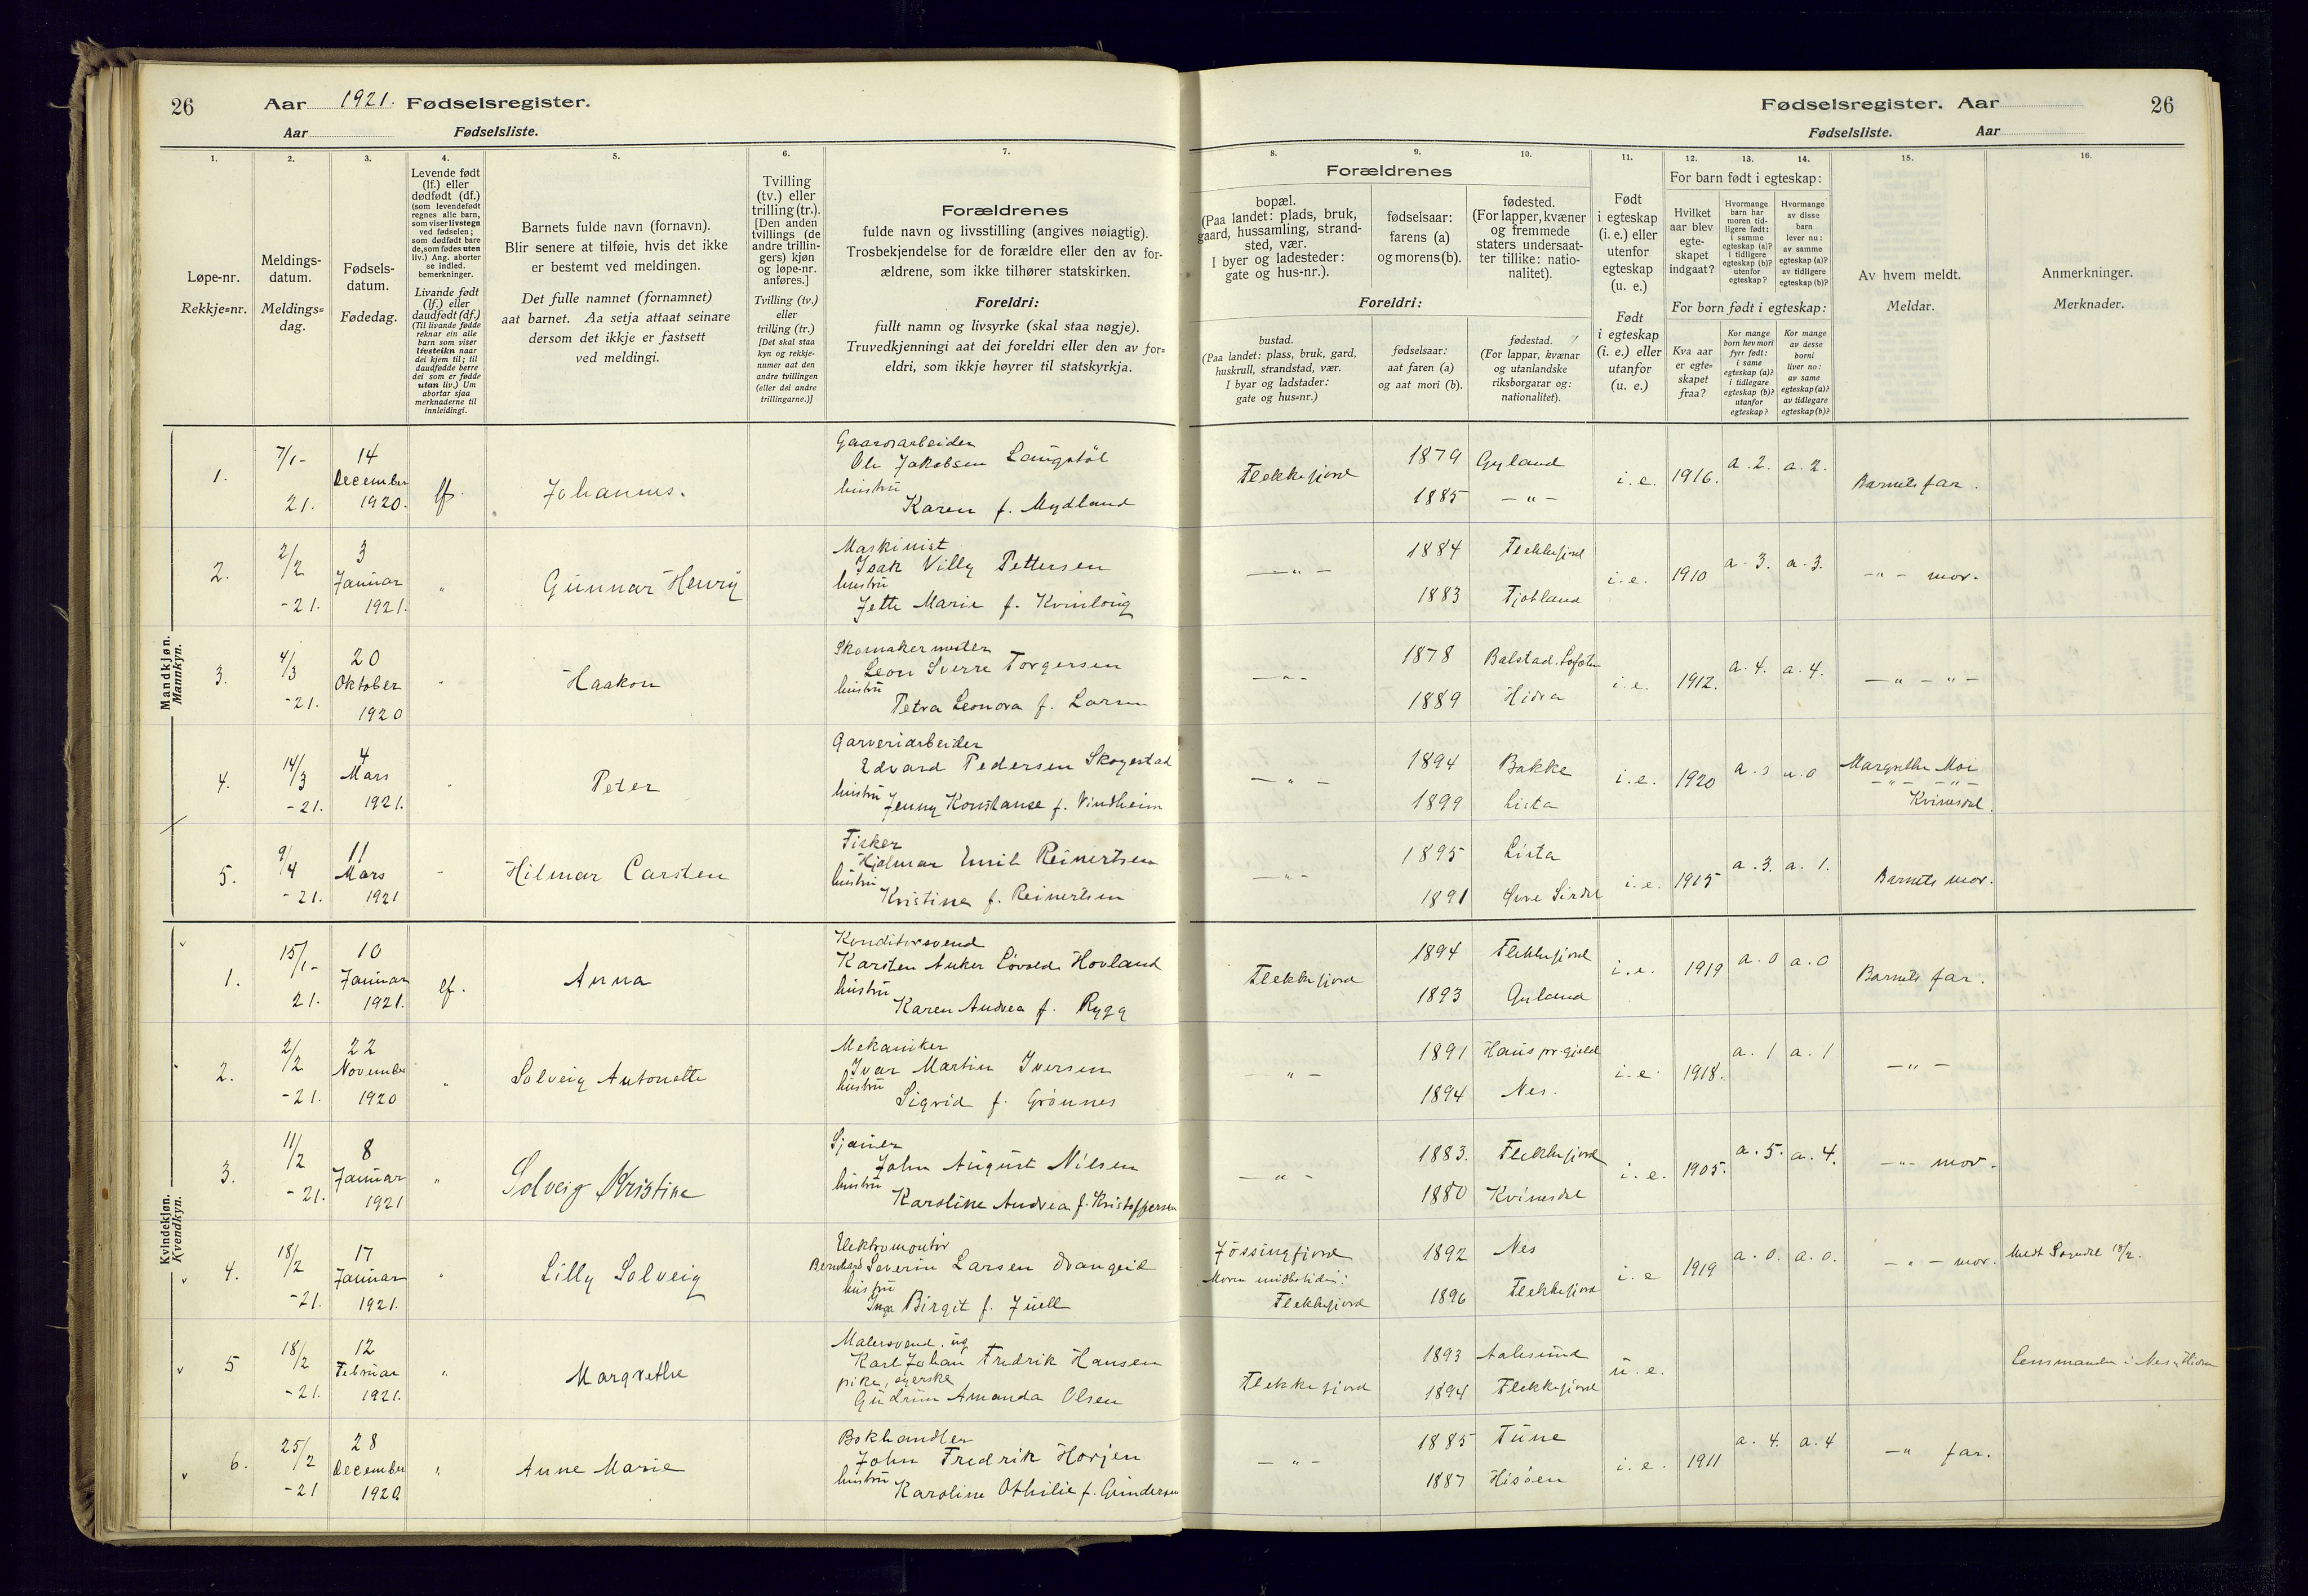 26 Aar 1921. Fødselsregister.
Aar Fødselsliste.
Fødselsregister. Aar 26
Fødselsliste. Aar
1. 2. 3. 4. 5. 6. 7. 8. 9. 10. 11. 12. 13. 14. 15. 16.
Løpe-nr.
Rekkje=nr.
Meldings-
datum.
Meldings=
dag.
Fødsels-
datum.
Fødedag.
Levende født
(lf.) eller
dødfødt (df.)
(som levendefødt
regnes alle barn,
som viser livstegn
ved fødselen;
som dødfødt bare
de, som fødes uten
liv.) Ang. aborter
se indled.
bemerkninger.
Livande født
(lf.) eller
daudfødt (df.)
(Til livande fødde
reknar ein alle
barn som viser
livsteikn naar
dei kjem til; til
daudfødde berre
dei som er fødde
utan liv.) Um
abortar sjaa
merknaderne til
innleidingi.
Barnets fulde navn (fornavn).
Blir senere at tilføie, hvis det ikke
er bestemt ved meldingen.
Det fulle namnet (fornamnet)
aat barnet. Aa setja attaat seinare
dersom det ikkje er fastsett
ved meldingi.
Tvilling
(tv.) eller
trilling (tr.).
[Den anden
tvillings (de
andre trillin-
gers) kjøn
og løpe-nr.
anføres.]
Tvilling (tv.)
eller
trilling (tr.)
[Det skal staa
kyn og rekkje-
numer aat den
andre tvillingen
(eller dei andre
trillingarne.)]
Forældrenes
fulde navn og livsstilling (angives nøiagtig).
Trosbekjendelse for de forældre eller den av for-
ældrene, som ikke tilhører statskirken.
Foreldri:
fullt namn og livsyrke (skal staa nøgje).
Truvedkjenningi aat dei foreldri eller den av for=
eldri, som ikkje høyrer til statskyrkja.
Forældrenes
bopæl.
(Paa landet: plads, bruk,
gaard, hussamling, strand-
sted, vær.
I byer og ladesteder:
gate og hus-nr.).
fødselsaar:
farens (a)
og morens (b).
fødested.
(For lapper, kvæner
og fremmede
staters undersaat-
ter tillike: natio-
nalitet).
Foreldri:
bustad.
(Paa landet: plass, bruk, gard,
huskrull, strandstad, vær.
I byar og ladstader:
gate og hus=nr.)
fødselsaar:
aat faren (a)
og aat mori (b).
fødestad.
(For lappar, kvænar
og utanlandske
riksborgarar og:
nationalitet).
Født
i egteskap
(i. e.) eller
utenfor
egteskap
(u. e.)
Født
i egteskap
(i. e.) eller
utanfor
(u. e.)
For barn født i egteskap:
Hvilket
aar blev
egte-
skapet
indgaat?
Hvormange
barn har
moren tid-
ligere født:
i samme
egteskap (a)?
i tidligere
egteskap (b)?
utenfor
egteskap?
Hvormange
av disse
barn
lever nu:
av samme
egteskap (a)?
av tidligere
egteskap (b)?
For born født i egteskap:
Kva aar
er egte=
skapet
fraa?
Kor mange
born hev mori
fyrr født:
i same
egteskap (a)?
i tidlegare
egteskap (b)?
utanfor
egteskap?
Kor mange
av desse
borni
liver no:
av same
egteskap (a)?
av tidlegare
egteskap (b)?
Av hvem meldt.
Meldar.
Anmerkninger.
Merknader.
Mandkjøn.
Mannkyn.
1. 7/1- 21. 14 December 1920. lf. Johannes.
Gaardsarbeider
Ole Jakobsen Langstøl
hustru
Karen f. Mydland
Flekkefjord 1879 Gyland i. e. 1916. a. 2. a. 2. Barnets far.
1885 - " -
2. 2/2 -21. 3 Januar 1921. " Gunnar Henry
Maskinist
Isak Villy Pettersen
hustru
Jette Marie f. Kvinlaug
- " - 1884 Flekkefjord i. e. 1910 a. 3. a. 3. - " - mor.
1883 Fjotland
3. 4/3 -21. 20 Oktober 1920 " Haakon
Skomakermester
Leon Sverre Torgersen
hustru
Petra Leonora f. Larsen
- " - 1878 Balstad. Lofoten i. e. 1912. a. 4. a. 4. - " - " -
1889 Hidra
4. 14/3 -21. 4 Mars 1921. " Peter
Garveriarbeider
Edvard Pedersen Skogestad
hustru
Jenny Konstanse f. Vindheim
- " - 1894 Bakke i. e. 1920 a. 0 a. 0 Margrethe Moi
1899 Lista - " - " -
Kvinesdal.
5. 9/4 -21. 11 Mars 1921 " Hilmar Carsten
Fisker
Hjalmar Emil Reinertsen
hustru
Kristine f. Reinertsen
- " - 1895 Lista i. e. 1915 a. 3. a. 1. Barnets mor.
1891 Øvre Sirdal
Kvindekjøn.
Kvendkyn.
1. 15/1- 21. 10 Januar 1921. lf. Anna
Konditorsvend
Karsten Anker Hovland
hustru
Karen Andrea f. Rygg
Flekkefjord 1894 Flekkefjord i. e. 1919 a. 0 a. 0 Barnets far.
1893 Gyland
2. 2/2 -21. 22 November 1920 " Solveig Antonette
Mekaniker
Ivar Martin Iversen
hustru
Sigrid f. Grønnes
- " - 1891 Haus pr.gjeld i. e. 1918. a. 1 a. 1 - " -
1894 Nes.
3. 11/2 -21. 8 Januar 1921 " Solveig Kristine
Sjauer
John August Nilsen
hustru
Karoline Andrea f. Kristoffersen
- " - 1883. Flekkefjord i. e. 1905. a. 5. a. 4. - " - mor.
1880 Kvinesdal
4. 18/2 -21. 17 Januar 1921. " Lilly Solveig
Elektromontør
Bernhard Severin Larsen Drangeid
hustru
Inga Birgit f. Juell
Jøssingfjord 1892 Nes i. e 1919 a. 0. a. 0. - " - mor. Meldt Sogndal 18/2.
Moren midlertidig:
Flekkefjord 1896 Flekkefjord
5 18/2 -21. 12 Februar 1921. " Margrethe
Malersvend, ug
Karl Johan Fredrik Hansen
pike, syerske
Gudrun Amanda Olsen
Flekkefjord 1893 Aalesund u. e. Lensmanden i Nes & Hidra
1894 Flekkefjord
6. 25/2 -21 28 December 1920 " Anne Marie
Bokhandler
John Fredrik Horjen
hustru
Karoline Othilie f. Gundersen
- " - 1885 Tune i. e. 1911 a. 4. a. 4 - " far.
1887 Hisøen